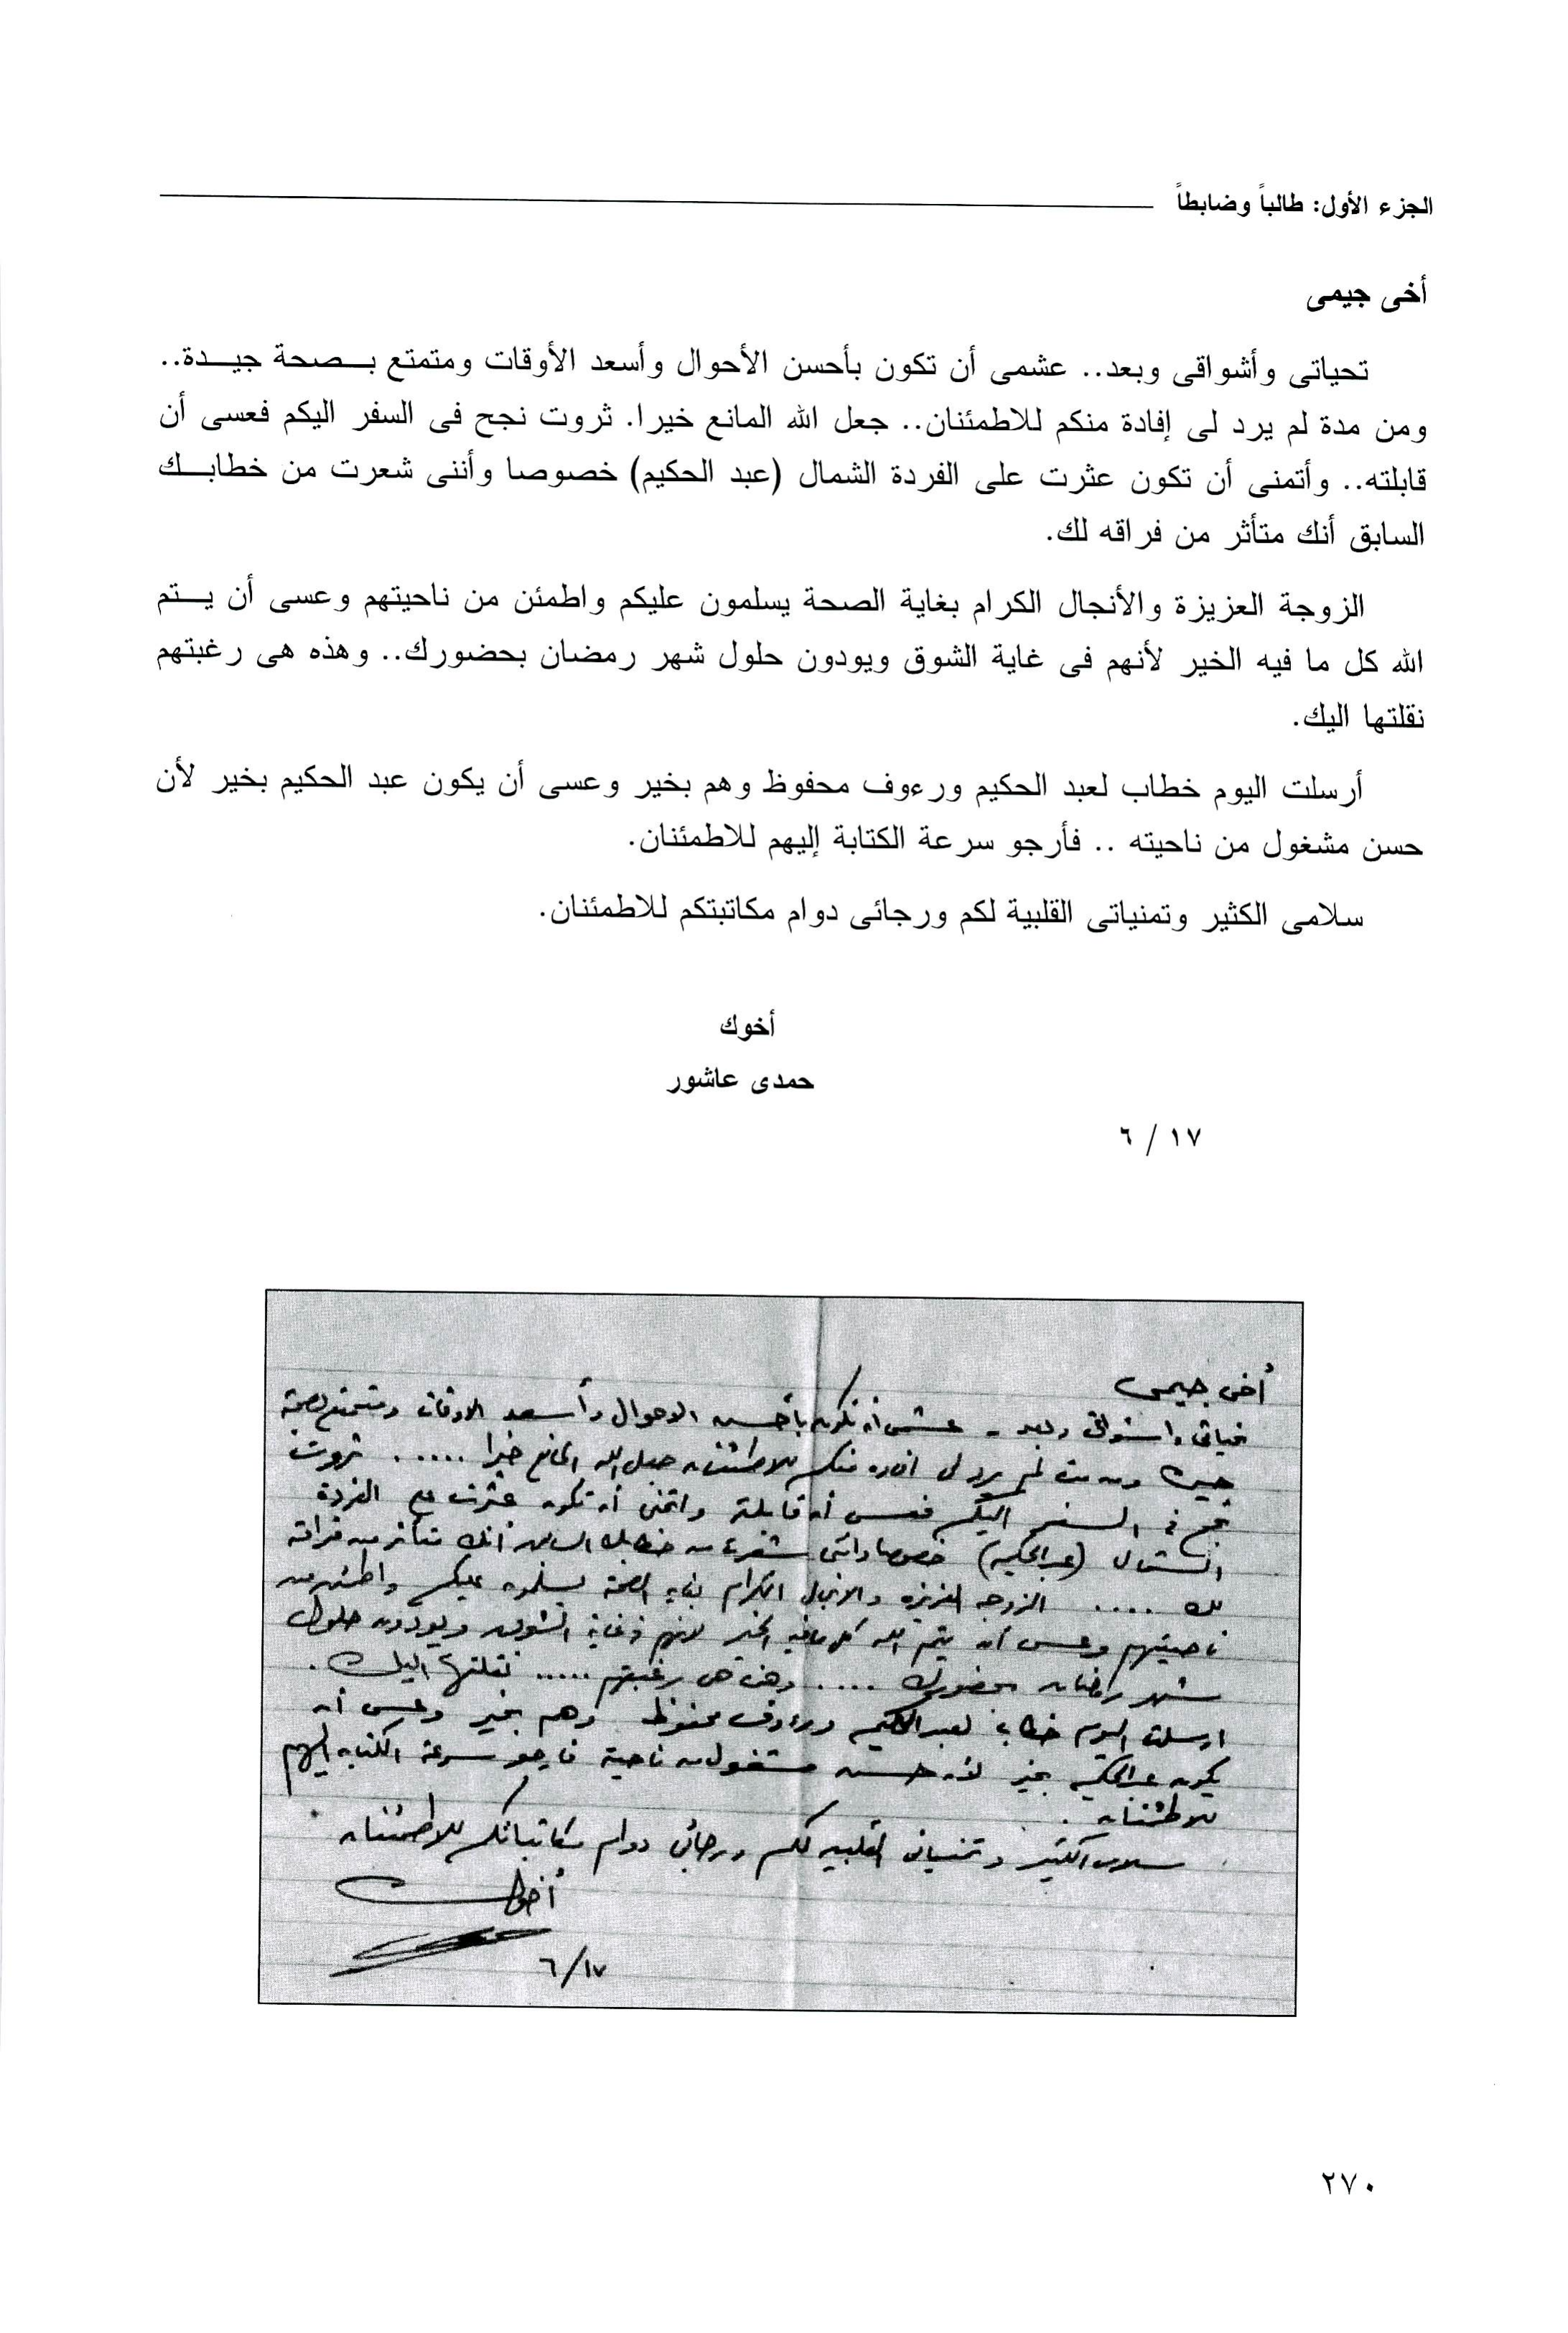 الجزء الأول: طالباً وضابطاً
أخى جيمى
تحياتى وأشواقى وبعد.. عشمى أن تكون بأحسن الأحوال وأسعد الأوقات ومتمتع بصحة جيدة..
ومن مدة لم يرد لى إفادة منكم للاطمئنان.. جعل الله المانع خيرا. ثروت نجح فى السفر اليكم فعسى أن
قابلته.. وأتمنى أن تكون عثرت على الفردة الشمال (عبد الحكيم) خصوصا وأننى شعرت من خطابك
السابق أنك متأثر من فراقه لك.
الزوجة العزيزة والأنجال الكرام بغاية الصحة يسلمون عليكم واطمئن من ناحيتهم وعسى أن يتم
الله كل ما فيه الخير لأنهم فى غاية الشوق ويودون حلول شهر رمضان بحضورك.. وهذه هى رغبتهم
نقلتها اليك.
أرسلت اليوم خطاب لعبد الحكيم ورءوف محفوظ وهم بخير وعسى أن يكون عبد الحكيم بخير لأن
حسن مشغول من ناحيته .. فأرجو سرعة الكتابة إليهم للاطمئنان.
سلامى الكثير وتمنياتى القلبية لكم ورجائى دوام مكاتبتكم للاطمئنان.
أخوك
حمدى عاشور
١٧ / ٦
أخى جيمى
تحياتى واشواقى وبعد - عشمى أن تكون بأحسن الاحوال وأسعد الاوقات ومتمتع بصحة
جيده ومن مدة لم يرد لى افاده منكم للاطمئنان جعل الله المانع خيرا ..... ثروت
نجح فى السفر اليكم فعسى أن قابلته واتمنى أن تكون عثرت على الفردة
الشمال (عبد الحكيم) خصوصا واننى شعرت من خطابك السابق أنك متأثر من فراقه
لك ..... الزوجه العزيزه والانجال الكرام بغايه الصحة يسلمون عليكم واطمئن من
ناحيتهم وعسى أن يتم الله كل مافيه الخير لانهم فى غاية الشوق ويودون حلول
شهر رمضان بحضورك ..... وهذه هى رغبتهم ..... نقلتها اليك .
ارسلت اليوم خطاب لعبد الحكيم ورءوف محفوظ وهم بخير وعسى أن
يكون عبد الحكيم بخير لأن حسن مشغول من ناحيته فارجو سرعة الكتابه اليهم
للاطمئنان .
سلامى الكثير وتمنياتى القلبيه لكم ورجائى دوام مكاتباتكم للاطمئنان .
أخوك
١٧/٦
٢٧٠